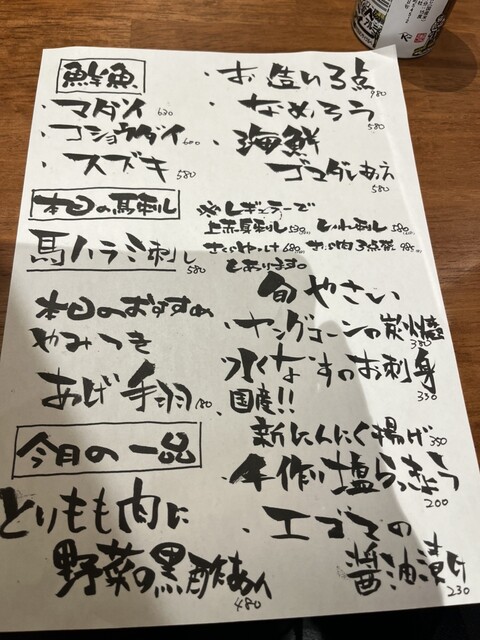 鮮魚
・マダイ 630
・コショウダイ 600
・スズキ 580
・お造り3点 980
・なめろう 580
・海鮮
ゴマダレあえ 580
本日の馬刺し
馬ハラミ刺し 580
※レギュラーで
上赤身刺し 580 とりレバ刺し 580
さくらユッケ 680 おつ肉3点盛 985
もあります。
本日のおすすめ
やみつき
あげ手羽 180
今月の一品
とりもも肉に
野菜の黒酢あん 480
旬やさい
・ヤングコーンの炭火焼 380
・水なすのお刺身 350
・国産!!
新にんにく揚げ 350
・手作り塩らっきょう 200
・エゴマの
醤油漬け 230